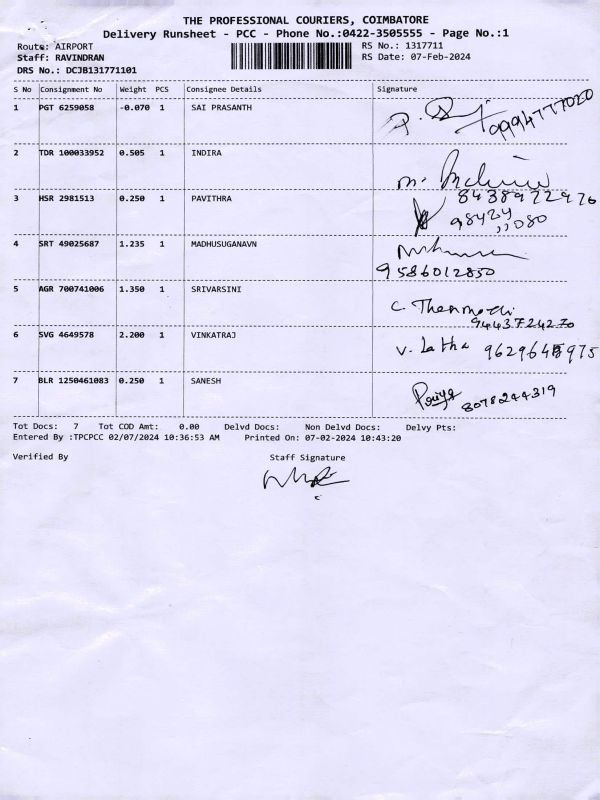 THE PROFESSIONAL COURIERS, COIMBATORE
Delivery Runsheet - PCC - Phone No.:0422-3505555 - Page No.:1
Route: AIRPORT RS No.: 1317711
Staff: RAVINDRAN RS Date: 07-Feb-2024
DRS No.: DCJB131771101
S No Consignment No Weight PCS Consignee Details Signature
1 PGT 6259058 -0.070 1 SAI PRASANTH
9994777020
2 TDR 100033952 0.505 1 INDIRA
8438972976
3 HSR 2981513 0.250 1 PAVITHRA
98424
11080
4 SRT 49025687 1.235 1 MADHUSUGANAVN
9586012850
5 AGR 700741006 1.350 1 SRIVARSINI C. Thenmozhi
9443724270
6 SVG 4649578 2.200 1 VINKATRAJ V. Latha
7 BLR 1250461083 0.250 1 SANESH Priya 8078244319
Tot Docs: 7 Tot COD Amt: 0.00 Delvd Docs: Non Delvd Docs: Delvy Pts:
Entered By :TPCPCC 02/07/2024 10:36:53 AM Printed On: 07-02-2024 10:43:20
Verified By Staff Signature